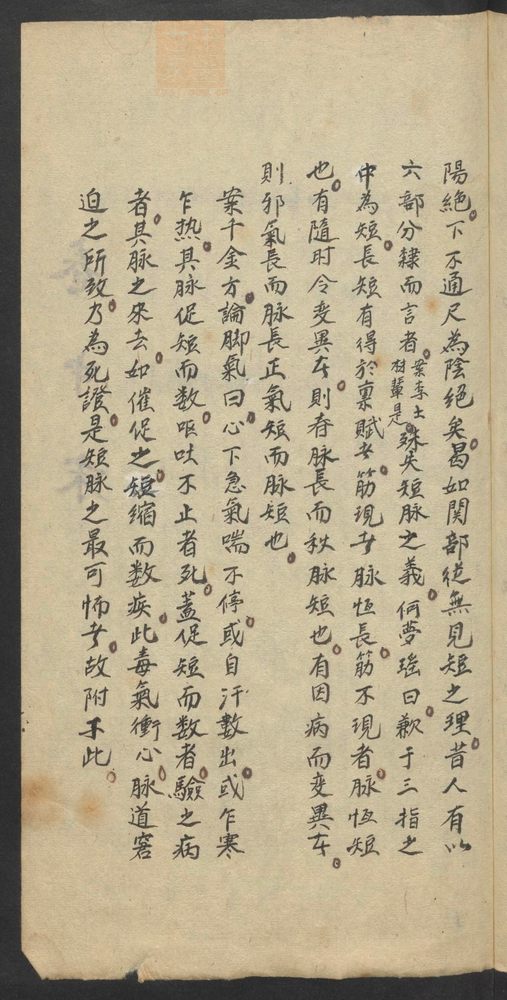 陽絶下不通尺為陰絶矣曷如関部從無見短之理昔人有以
六部分隷而言者案李士材輩是殊失短脉之義何夢瑤曰歉于三指之
中為短長短有得於稟賦者筋現者脉恆長筋不現者脉恆短
也有隨時令変異者則春脉長而秋脉短也有因病而変異者
則邪氣長而脉長正氣短而脉短也
案千金方論脚氣曰心下急氣喘不停或自汗數出或乍寒
乍热其脉促短而数嘔吐不止者死蓋促短而数者驗之病
者其脉之來去如催促之短縮而数疾此毒氣衝心脉道窘
迫之所致乃為死證是短脉之最可怖者故附于此